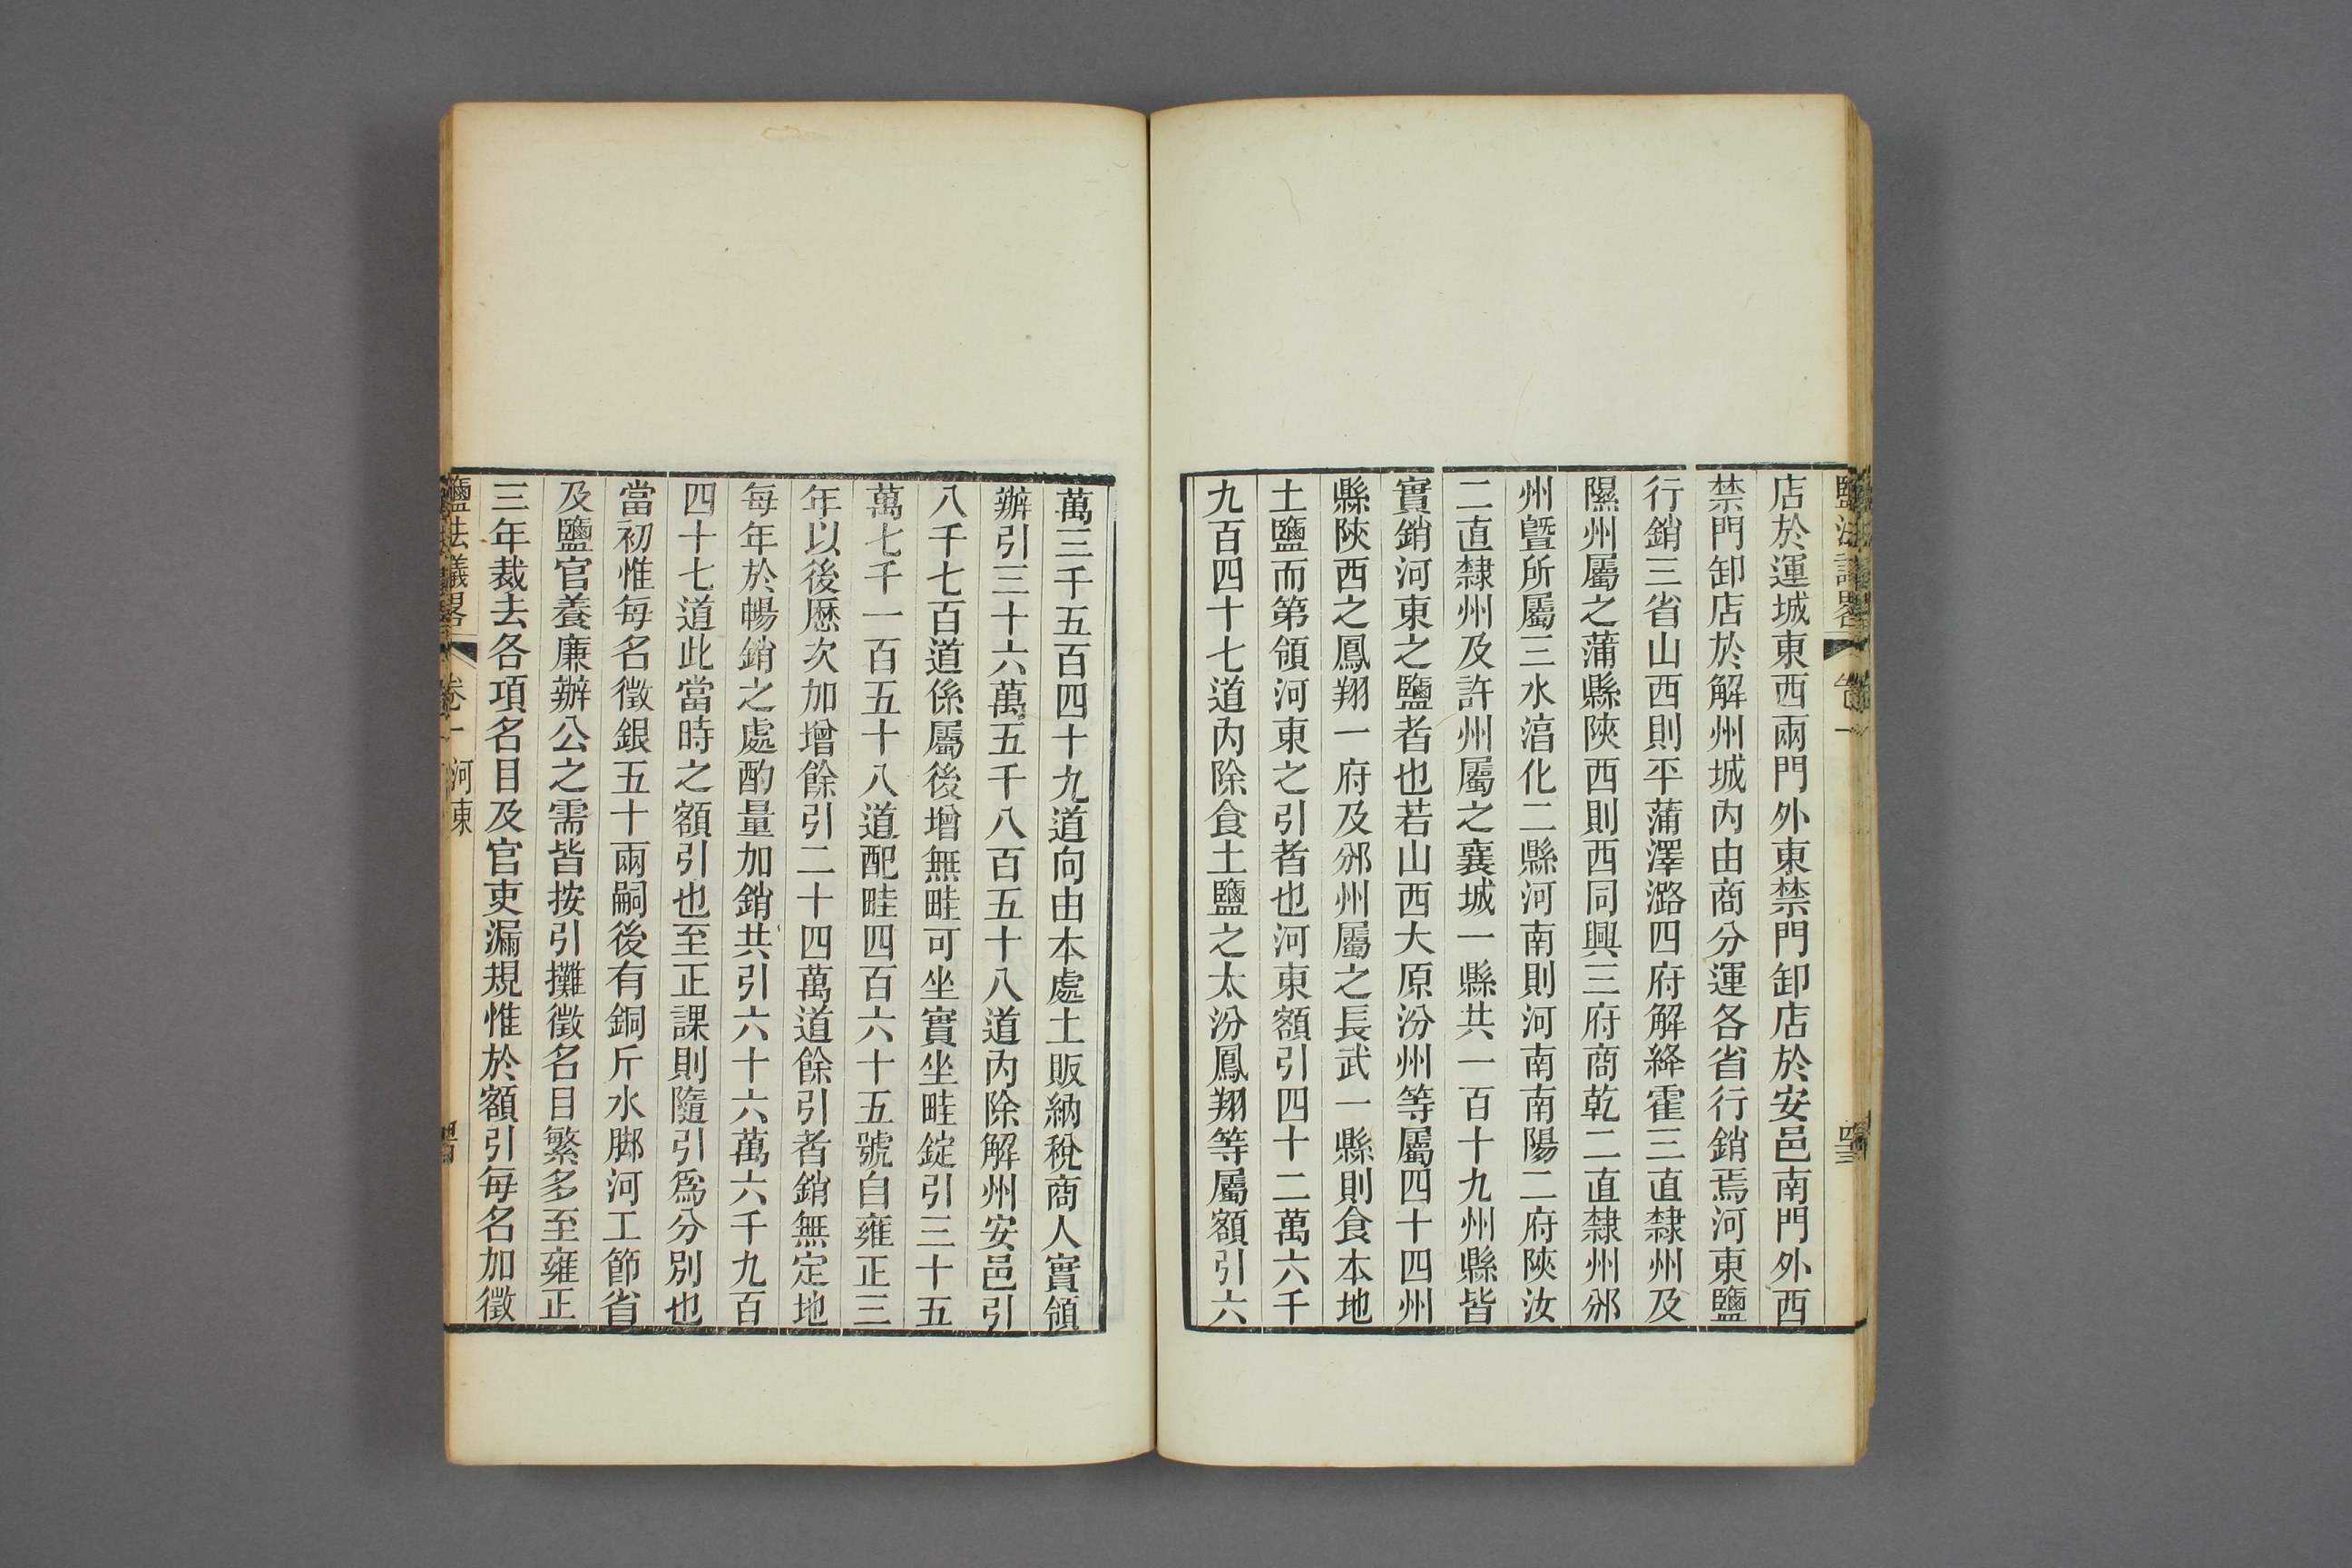 店於運城東西兩門外東禁門卸店於安邑南門外西
禁門卸店於解州城內由商分運各省行銷焉河東鹽
行銷三省山西則平蒲澤潞四府解絳霍三直隸州及
隰州屬之蒲縣陝西則西同興三府商乾二直隸州邠
州暨所屬三水湻化二縣河南則河南南陽二府陝汝
二直隸州及許州屬之襄城一縣共一百十九州縣皆
實銷河東之鹽者也若山西大原汾州等屬四十四州
縣陝西之鳳翔一府及邠州屬之長武一縣則食本地
土鹽而第領河東之引者也河東額引四十二萬六千
九百四十七道內除食土鹽之太汾鳳翔等屬額引六
萬三千五百四十九道向由本處土販納稅商人實領
辦引三十六萬五千八百五十八道內除解州安邑引
八千七百道係屬後增無畦可坐實坐畦錠引三十五
萬七千一百五十八道配畦四百六十五號自雍正三
年以後歷次加增餘引二十四萬道餘引者銷無定地
每年於暢銷之處酌量加銷共引六十六萬六千九百
四十七道此當時之額引也至正課則隨引爲分別也
當初惟每名徵銀五十兩嗣後有銅斤水腳河工節省
及鹽官養廉辦公之需皆按引攤徵名目繁多至雍正
三年裁去各項名目及官吏漏規惟於額引每名加徵
鹽法議畧
卷一
河東